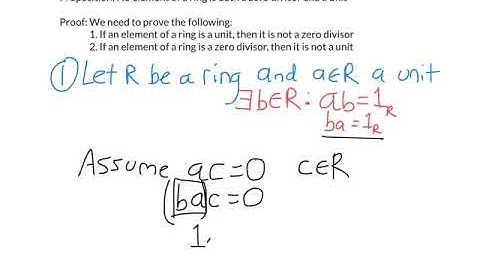 Proposition: No element of a ring is both a zero divisor and a unit
Proof: We need to prove the following:
1. If an element of a ring is a unit, then it is not a zero divisor
2. If an element of a ring is a zero divisor, then it is not a unit
① Let R be a ring and a∈R a unit
∃b∈R: ab=1_R
ba=1_R
Assume ac=0 c∈R
(ba)c=0
1.